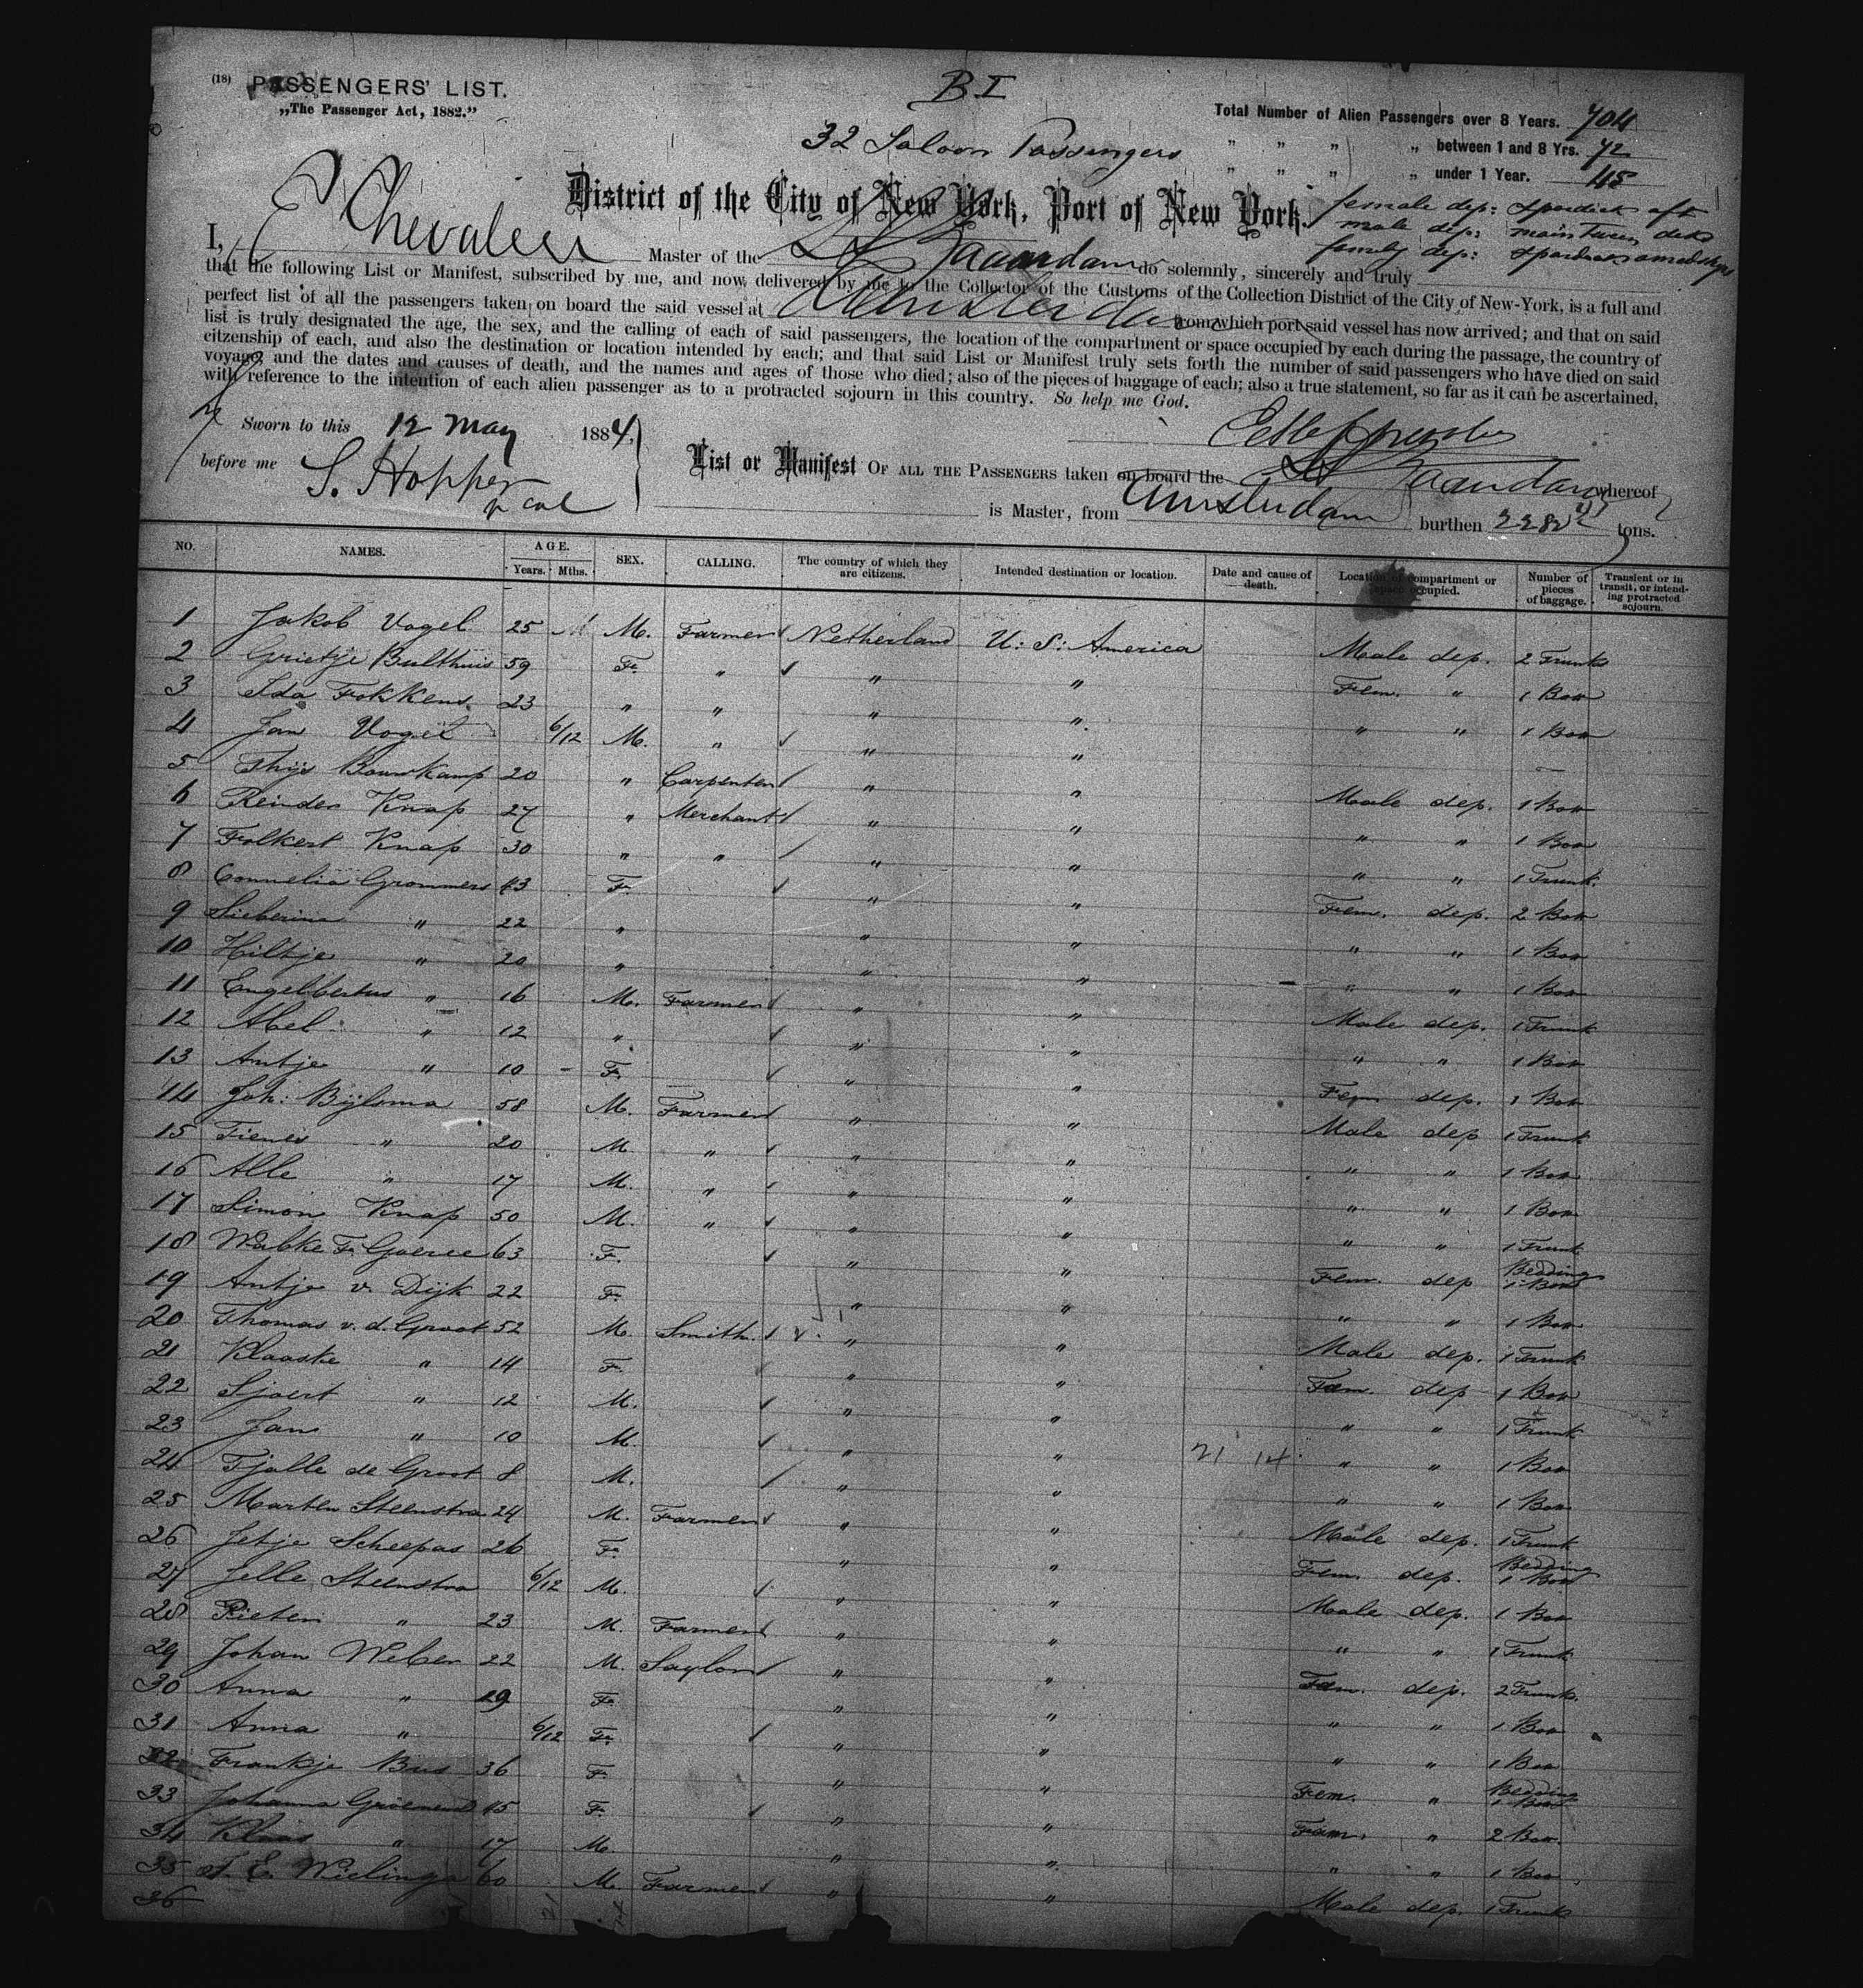 (18) PASSENGERS' LIST.
„The Passenger Act, 1882."
B I
32 Saloon Passengers
Total Number of Alien Passengers over 8 Years. 704
„ „ „ „ between 1 and 8 Yrs. 72
„ „ „ „ under 1 Year. 45
District of the City of New York, Port of New York.
female dep: afterdeck aft
male dep: main tween deck
family dep:
I, Chevalier Master of the SS Zaandam do solemnly, sincerely and truly
that the following List or Manifest, subscribed by me, and now delivered by me to the Collector of the Customs of the Collection District of the City of New-York, is a full and
perfect list of all the passengers taken on board the said vessel at Amsterdam from which port said vessel has now arrived; and that on said
list is truly designated the age, the sex, and the calling of each of said passengers, the location of the compartment or space occupied by each during the passage, the country of
citzenship of each, and also the destination or location intended by each; and that said List or Manifest truly sets forth the number of said passengers who have died on said
voyage, and the dates and causes of death, and the names and ages of those who died; also of the pieces of baggage of each; also a true statement, so far as it can be ascertained,
with reference to the intention of each alien passenger as to a protracted sojourn in this country. So help me God.
Sworn to this 12 May 1884,
before me S. Hopper
List or Manifest OF ALL THE PASSENGERS taken on board the SS Zaandam whereof
is Master, from Amsterdam burthen tons.
NO. NAMES. AGE. Years. Mths. SEX. CALLING. The country of which they are citizens. Intended destination or location. Date and cause of death. Location of compartment or space occupied. Number of pieces of baggage. Transient or in transit, or intending protracted sojourn.
1 Jakob Vogel 25 M. Farmer Netherland U: S: America Male dep. 2 Trunks
2 Grietje Bulthuis 59 F. „ „ „ Fem. „ 1 Box
3 Ida Fokkens 23 „ „ „ „ „ „ 1 Box
4 Jan Vogel 6/12 M. „ „ „ —
5 Thijs Bouwkamp 20 „ Carpenter „ „ Male dep. 1 Box
6 Reinder Knap 27 „ Merchant „ „ „ „ 1 Box
7 Folkert Knap 30 „ „ „ „ „ „ 1 Trunk.
8 Connelia Grommers 43 F. „ „ Fem. dep. 2 Box
9 Sieberina „ 22 „ „ „ „ „ 1 Box
10 Hiltje „ 20 „ „ „ „ „ 1 Box
11 Engelbertus „ 16 M. Farmer „ „ Male dep. 1 Trunk
12 Abel „ 12 „ „ „ „ „ 1 Box
13 Antje „ 10 F. „ „ Fem dep. 1 Box
14 Joh: Bijlsma 58 M. Farmer „ „ Male dep 1 Trunk
15 Tienes „ 20 M. „ „ „ „ „ 1 Box
16 Alle „ 17 M. „ „ „ „ „ 1 Box
17 Simon Knap 50 M. „ „ „ „ „ 1 Trunk
18 Wabke F. Goeree 63 F. „ „ Fem. dep Bedding 1 Box
19 Antje v. Dijk 22 F. „ „ „ „ 1 Box
20 Thomas v. d. Groot 52 M. Smith. „ „ Male dep. 1 Trunk
21 Klaaske „ 14 F. „ „ Fam. dep 1 Box
22 Sjoert „ 12 M. „ „ „ „ 1 Trunk
23 Jan „ 10 M. „ „ 21 14 „ „ 1 Box
24 Tjalle de Groot 8 M. „ „ „ „ 1 Box
25 Marten Steenstra 24 M. Farmer „ „ Male dep. 1 Trunk
26 Jetje Scheepas 26 F. „ „ Fem. dep. Bedding 1 Box
27 Jelle Steenstra 6/12 M. „ „ Male dep. 1 Box
28 Pieter „ 23 M. Farmer „ „ „ „ 1 Trunk
29 Johan Weber 22 M. Saylor „ „ Fam. dep. 2 Trunks.
30 Anna „ 29 F. „ „ „ „ 1 Box
31 Anna „ 6/12 F. „ „ „ „ 1 Box
32 Frankje Bus 36 F. „ „ Fem. „ Bedding 1 Box
33 Johanna 45 F. „ „ Fam. „ 2 Box
34 Klaas „ 17 M. „ „ „ „ 1 Box
35 T. E. Wielinga 60 M. Farmer „ „ Male dep. 1 Trunk
36